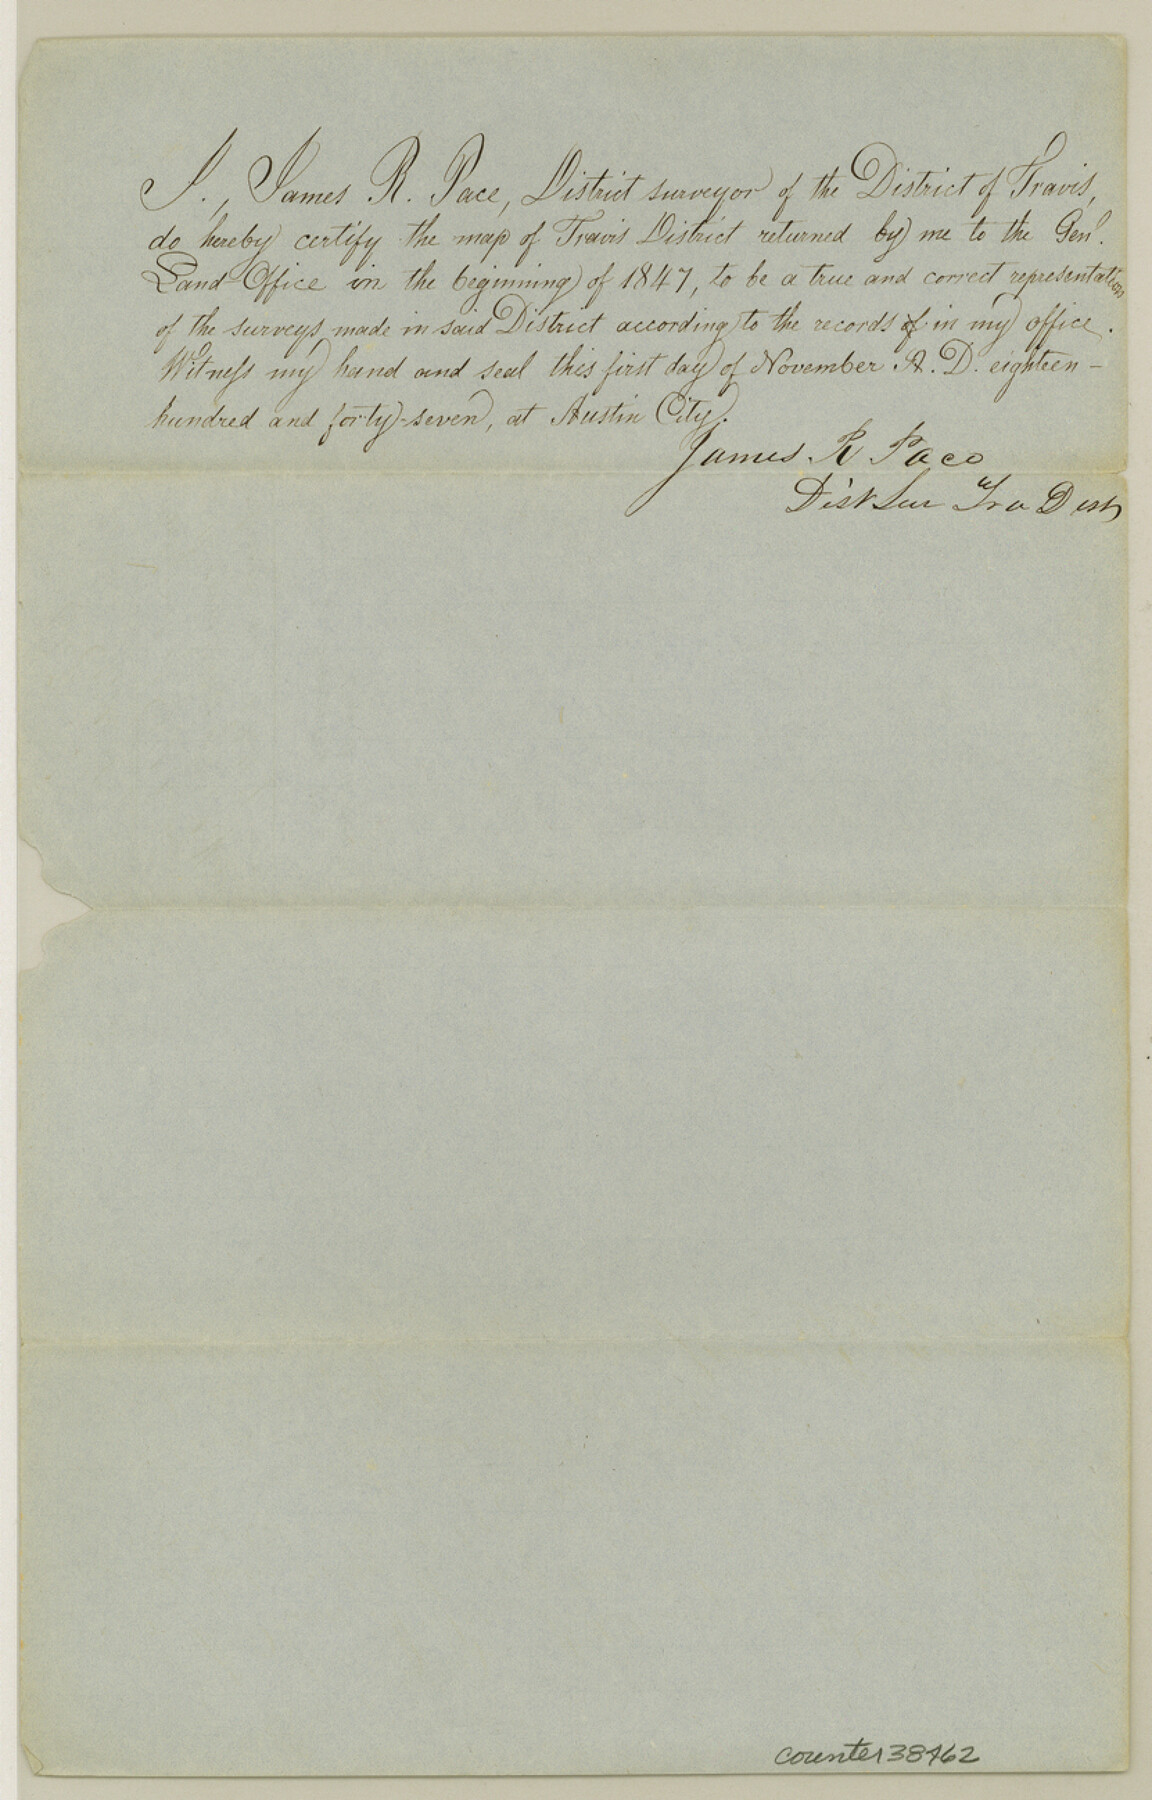 I., James R. Pace, District surveyor of the District of Travis,
do hereby certify the map of Travis District returned by me to the Genl.
Land-Office in the beginning of 1847, to be a true and correct representation
of the surveys made in said District according to the records of in my office.
Witness my hand and seal this first day of November A. D. eighteen-
hundred and forty-seven, at Austin City.
James R Pace
Dist Sur Tra Dist
counter38462